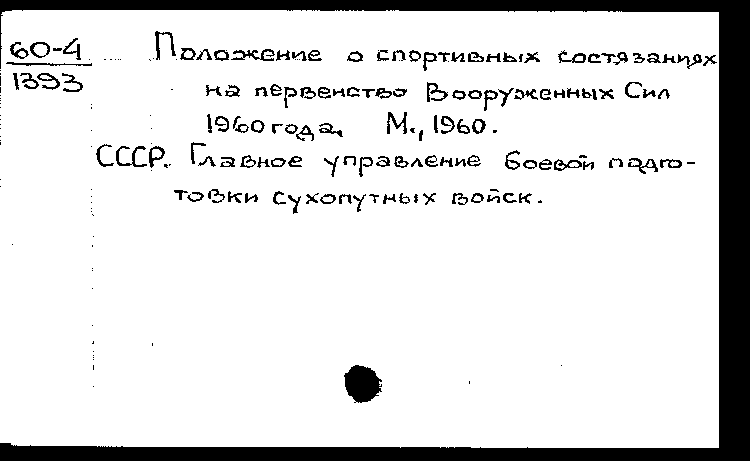 60-4 Положение о спортивных состязаниях
1393 на первенство Вооруженных Сил
1960 года. М., 1960.
СССР. Главное управление боевой подго-
товки сухопутных войск.